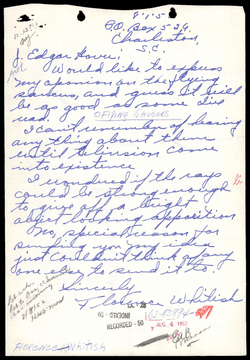 8-1-5
P.O. Box 5-29.
Charleston,
S.C.
J. Edgar Hover:
Would like to express
my oponion on the flying
saucers, and guess it will
be as good as some I've
read.
FLYING SAUCERS
I can't remember of hearing
any thing about them
until television came
into existence.
I wondered if the rays
could be strong enough
to give off a bright
object looking apposition
No, special reason for
sending you my idea
just couldn't think of any
one else to send it to.
Sincerly
Florence Whitish
RECORDED - 50
INDEXED - 50
AUG 4 1952
FLORENCE WHITISH